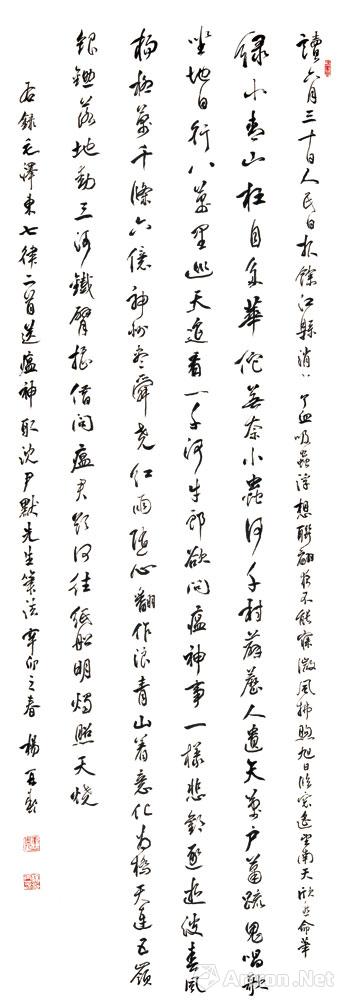 讀六月三十日人民日報餘江縣消了血吸蟲浮想聯翩夜不能寐微風拂煦旭日臨窗遙望南天欣然命筆
綠水青山枉自多華佗無奈小蟲何千村薜荔人遺矢萬戶蕭疏鬼唱歌
坐地日行八萬里巡天遙看一千河牛郎欲問瘟神事一樣悲歡逐逝波春風
楊柳萬千條六億神州盡舜堯紅雨隨心翻作浪青山着意化為橋天連五嶺
銀鋤落地動三河鐵臂搖借問瘟君欲何往紙船明燭照天燒
右錄毛澤東七律二首送瘟神取沈尹默先生筆法辛卯之春楊
Artron.Net